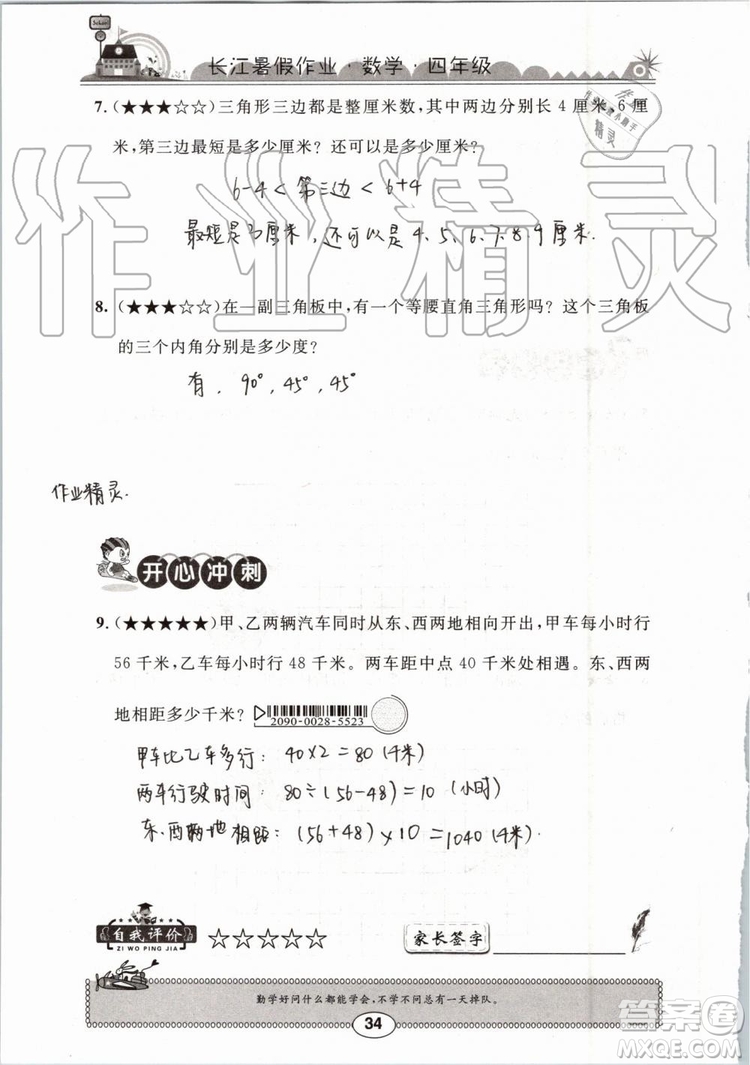 School
长江暑假作业·数学·四年级
7.(★★★☆☆)三角形三边都是整厘米数,其中两边分别长 4 厘米,6 厘
米,第三边最短是多少厘米? 还可以是多少厘米?
6-4 < 第三边 < 6+4
最短是3厘米, 还可以是 4、5、6、7、8、9 厘米.
8.(★★★☆☆)在一副三角板中,有一个等腰直角三角形吗? 这个三角板
的三个内角分别是多少度?
有, 90°, 45°, 45°
作业精灵.
开心冲刺
9.(★★★★★)甲、乙两辆汽车同时从东、西两地相向开出,甲车每小时行
56 千米,乙车每小时行 48 千米。两车距中点 40 千米处相遇。东、西两
地相距多少千米?
2090-0028-5523
甲车比乙车多行: 40×2=80(千米)
两车行驶时间: 80÷(56-48)=10 (小时)
东、西两地相距: (56+48)×10=1040(千米).
自我评价 ☆☆☆☆☆ 家长签字
ZI WO PING JIA
勤学好问什么都能学会,不学不问总有一天掉队。
34
作业精灵
答案圈
MXQE.COM